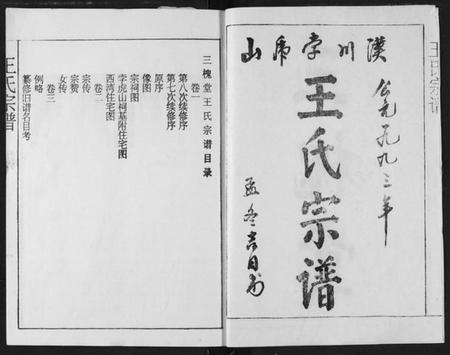 漢川李虎山
公元一九九三年
王氏宗谱
孟冬吉日
王氏宗谱
三槐堂王氏宗谱目录
卷一
第八次续修序
第七次续修序
原序
像图
宗祠图
李虎山祠基附住宅图
西湾住宅图
卷二
宗传
宗赞
女传
卷三
例略
纂修旧谱名目考
王氏宗谱